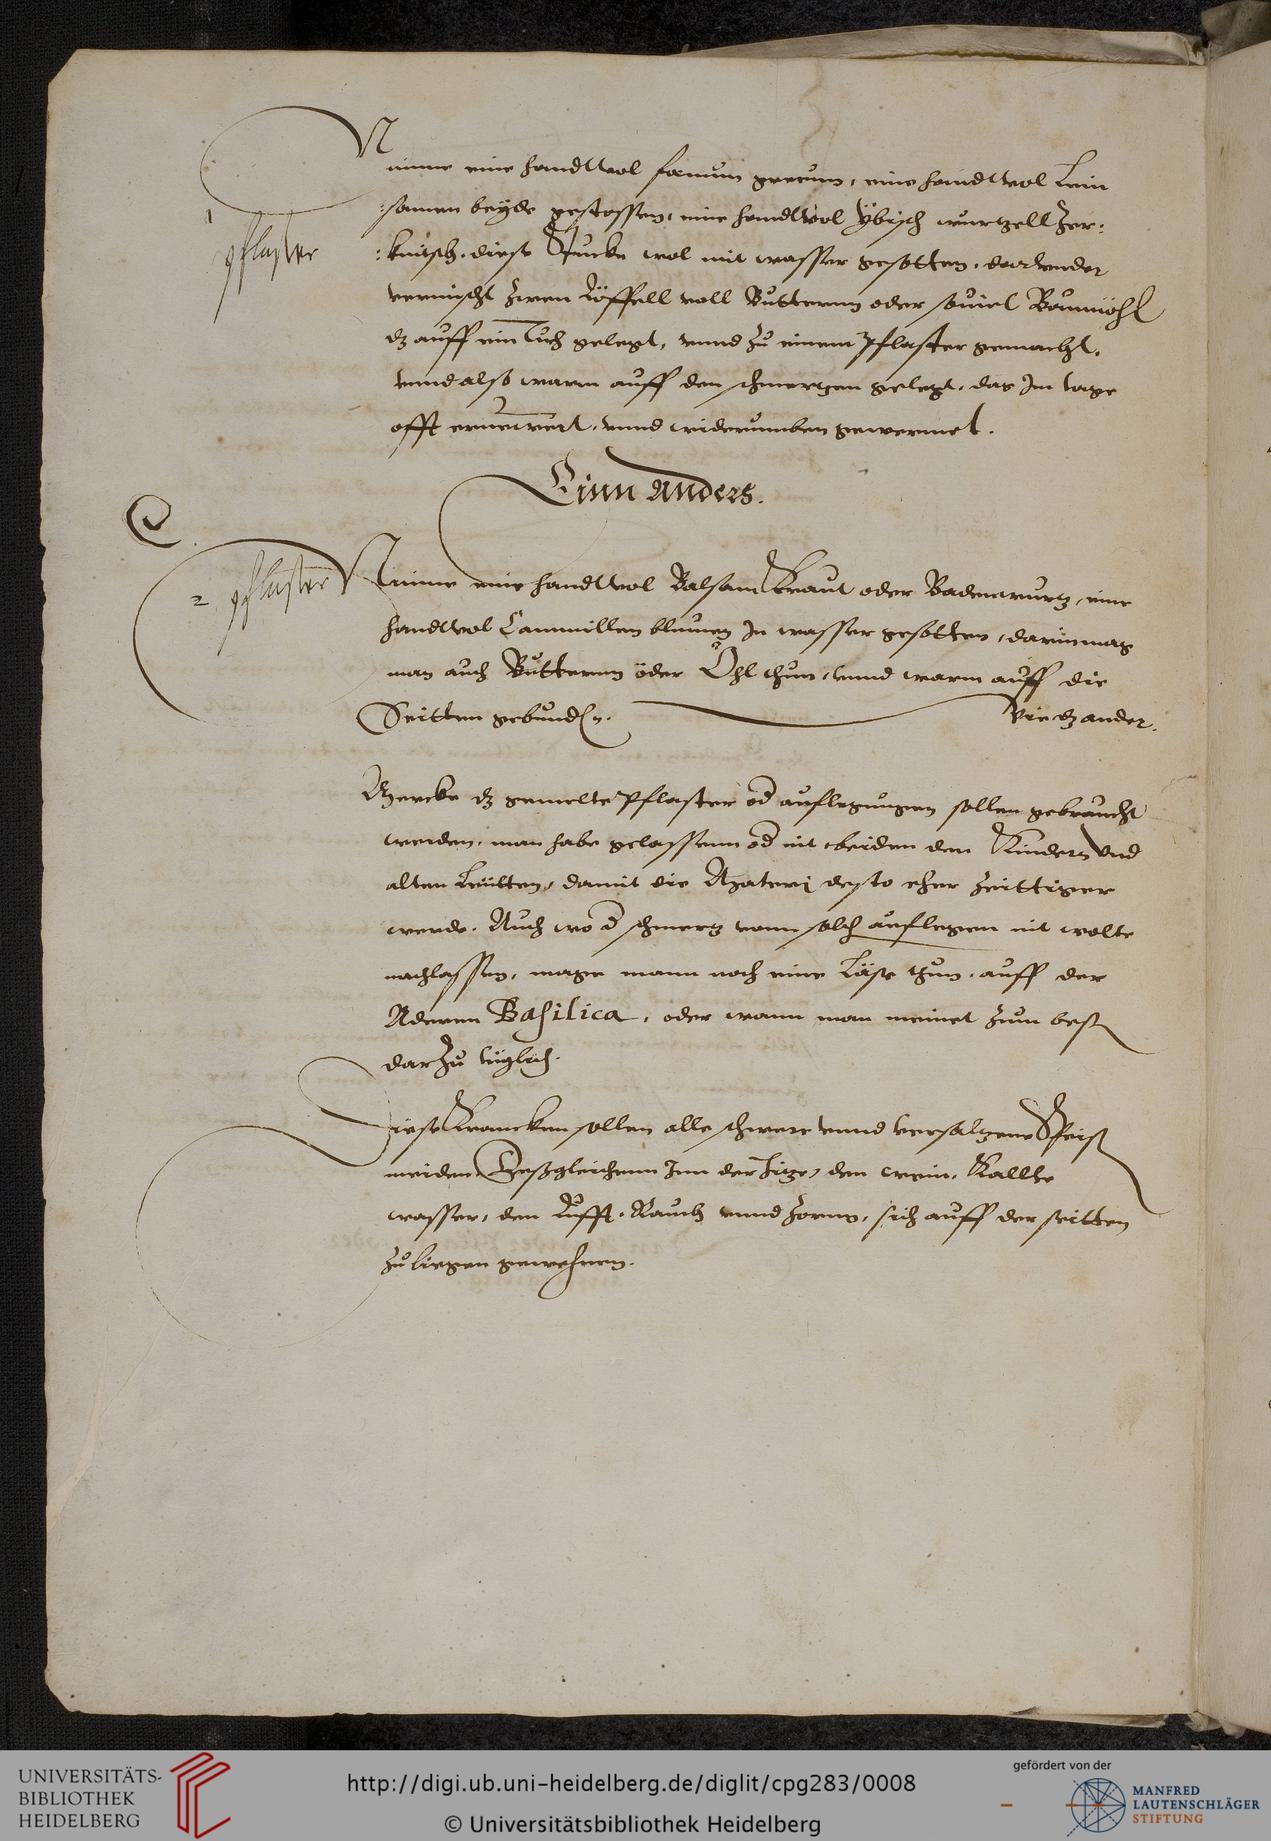 1
pflaster
Nimme eine handtvol fœnum grecum, eine handtvol Lein
:samen beyde gestossen, eine handtvol Ybisch wurtzell Zer:
:knütsch, diese Stucke wol mit wasser gesotten, darunder
vermischt zwen Löffell voll Butteren oder souiel Baumöhl
dz auff ein Tuch gelegt, vnnd zu einem Pflaster gemacht,
vnnd also warm auff den schmertzen gelegt, das Im tage
offt ernewert, vnnd widerumben gewermet.
Einn Anders.
2 pflaster
Nimme eine handtvol Balsam Kraut oder Badenwurtz, eine
handtvol Cammillen blumen In wasser gesotten, darin mag
man auch Butteren oder Öhl thun, vnnd warm auff die
Seitten gebunden. Wie dz ander.
Mercke dz gemelte Pflaster od auflegungen sollen gebraucht
werden, man habe gelassenn od nit, beiden den Kindern Und
alten Leütten, damit die Materj desto eher Zeittiger
werde. Auch wo d schmertz vonn solch auflegen nit wolte
nachlassen, mage mann noch eine Läse thun, auff der
Aderen Basilica, oder wann man meinet Zum best
darZu tüglich.
Diese Krancken sollen alle schwere vnnd versaltzene Speiß
meiden, Deßgleichenn Inn der Hitze, den wein, Kallte
wasser, den Lufft, Rauch vnnd Zoren, sich auff der seitten
Zu liegen gewehnen.
UNIVERSITÄTS-
BIBLIOTHEK
HEIDELBERG
http://digi.ub.uni-heidelberg.de/diglit/cpg283/0008
© Universitätsbibliothek Heidelberg
gefördert von der
MANFRED
LAUTENSCHLÄGER
STIFTUNG